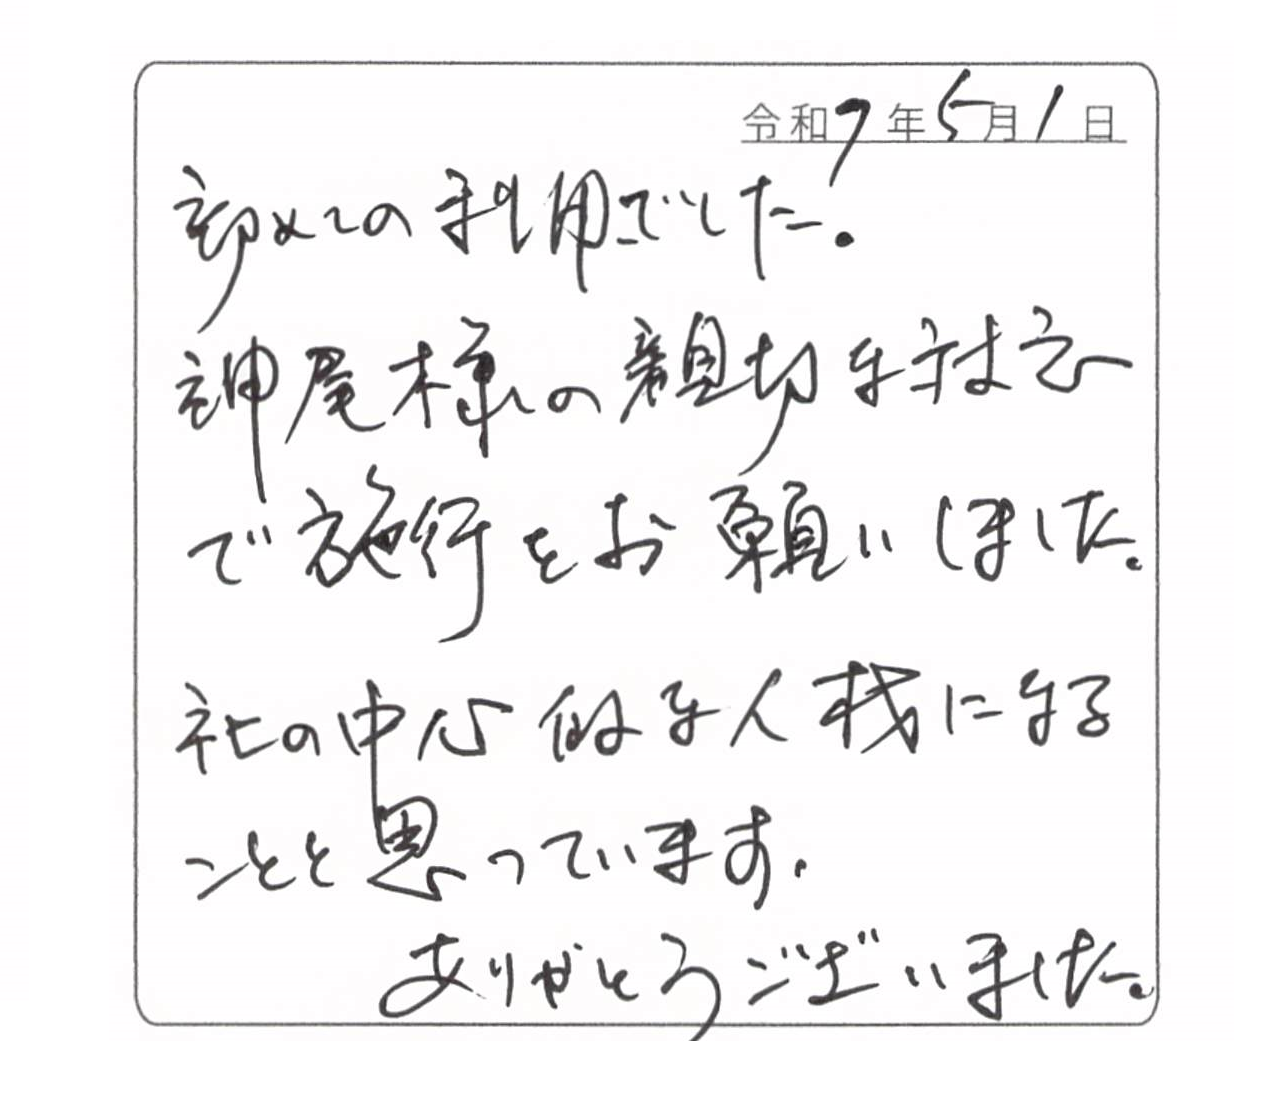 令和7年5月1日
初めての利用でした。
神尾様の親切な対応
で施行をお願いしました。
社の中心的な人材になる
ことと思っています。
ありがとうございました。